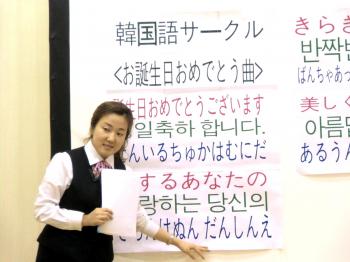 韓国語サークル
<お誕生日おめでとう曲>
誕生日おめでとうございます
일축하 합니다.
んいるちゅかはむにだ
するあなたの
랑하는 당신의
らんはぬん だんしんえ
きらき
반짝반
ばんちゃあっ
美しく
아름답
あるうん